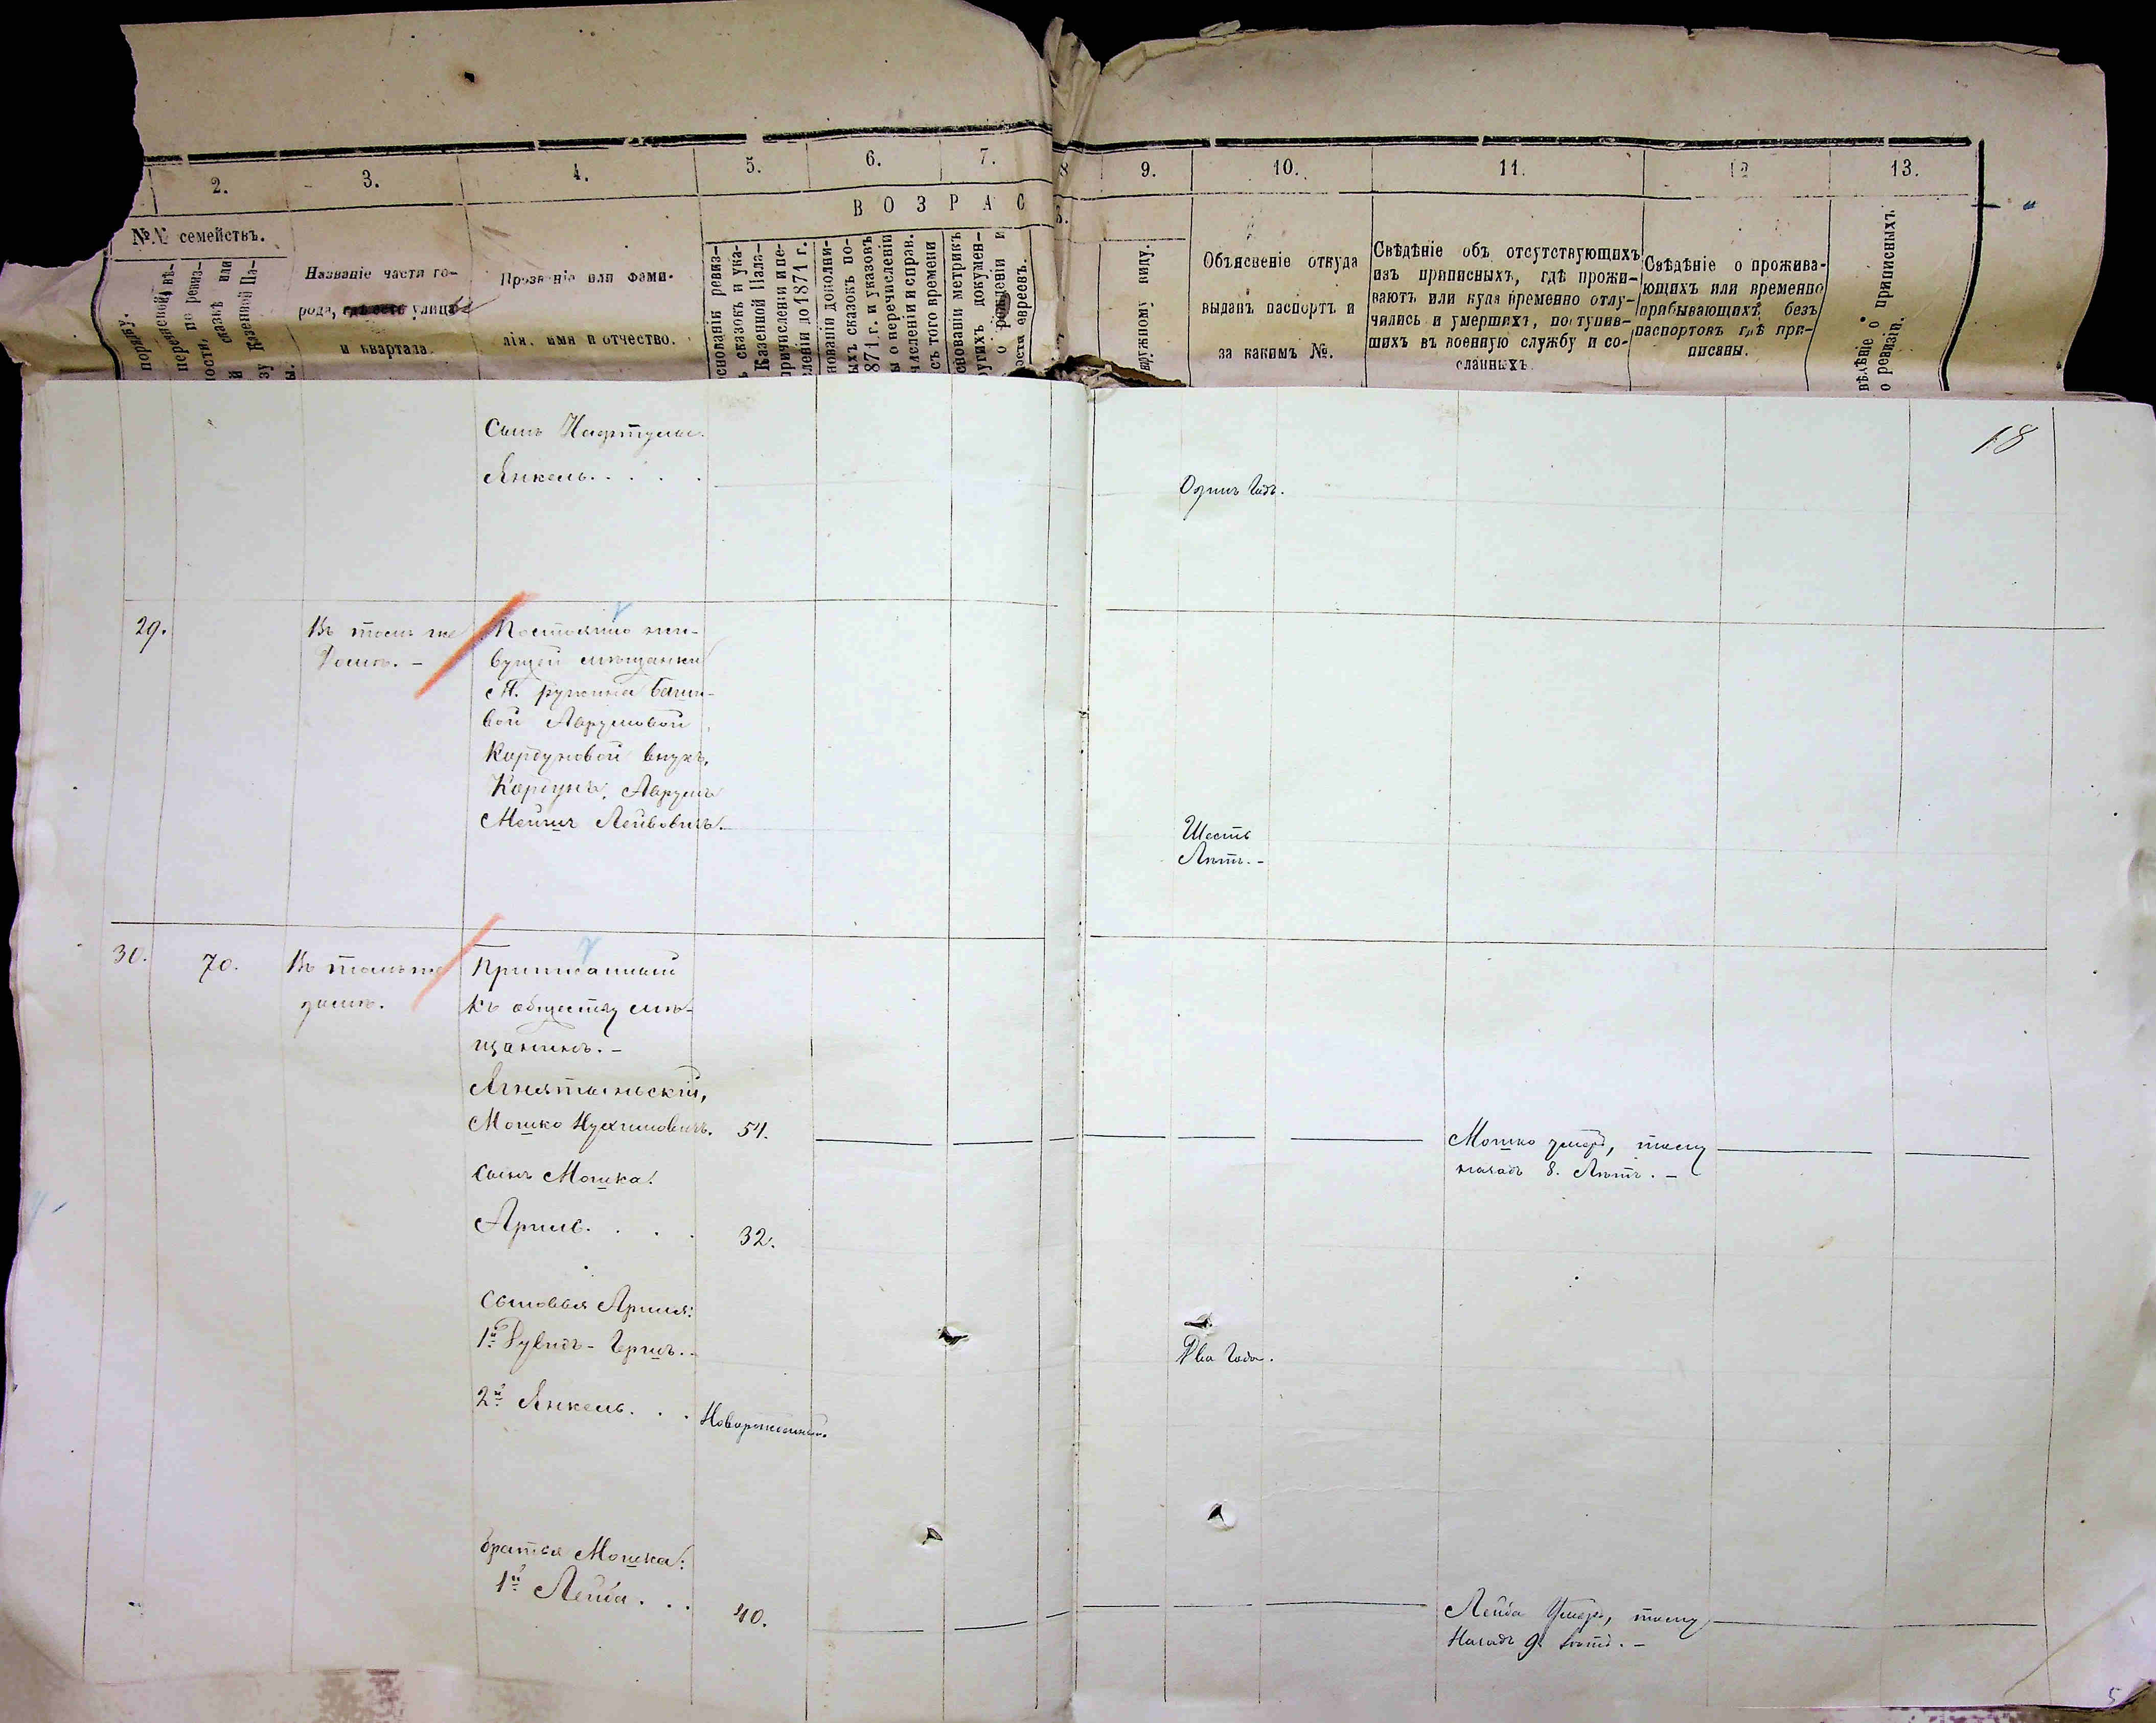 2.
3.
4.
5.
6.
7.
8
9.
10.
11.
12
13.
В О З Р А С
№.№ семействъ.
порядку.
переписной вѣ-
ости, по ревиз-
й сказкѣ или
зу Казенной Па-
ы.
Названіе части го-
рода, гдѣ есть улицы
и квартала.
Прозваніе или фами-
лія, имя и отчество.
снованіи ревиз-
ъ сказокъ и ука-
Казенной Пала-
причисленіи и пе-
сленіи до 1871 г.
нованіи дополни-
ыхъ сказокъ по-
871 г. и указовъ
ы о перечисленіи
численіи и справ.
съ того времени
снованіи метрикъ
ругихъ докумен-
о рожденіи и
ости евреевъ.
аружному виду.
Объясненіе откуда
выданъ паспортъ и
за какимъ №.
Свѣдѣніе объ отсутствующихъ
изъ приписныхъ, гдѣ прожи-
ваютъ или куда временно отлу-
чились и умершихъ, поступив-
шихъ въ военную службу и со-
сланныхъ.
Свѣдѣніе о прожива-
ющихъ или временно
прибывающихъ безъ
паспортовъ гдѣ при-
писаны.
вѣдѣніе о приписныхъ
о ревизіи.
18
Сынъ Нафтулы.
Янкель. . . . .
Одинъ Годъ.
29.
Въ томъ же
Домѣ. –
Постоянно жи-
вущей мѣщанки
Аврумовой
Кордуновой внукъ.
Кордунъ, Аврумъ
Лейбовичъ.
Шесть
Лѣтъ. –
30.
70.
Въ томъ же
домѣ.
Приписанный
къ обществу мѣ-
щанинъ. –
Ягнятыньскій,
Мошко Нухимовичъ. 54.
Мошко умеръ, тому
назадъ 8. Лѣтъ. –
Сынъ Мошка:
Аріиъ. . . . 32.
Сыновья Арія:
1й Дувидъ-Гершъ. –
Два Года.
2й Янкель. . . Новорожденный.
братья Мошка:
1й Лейба. . . 40.
Лейба Умеръ, тому
Назадъ 9. лѣтъ. –